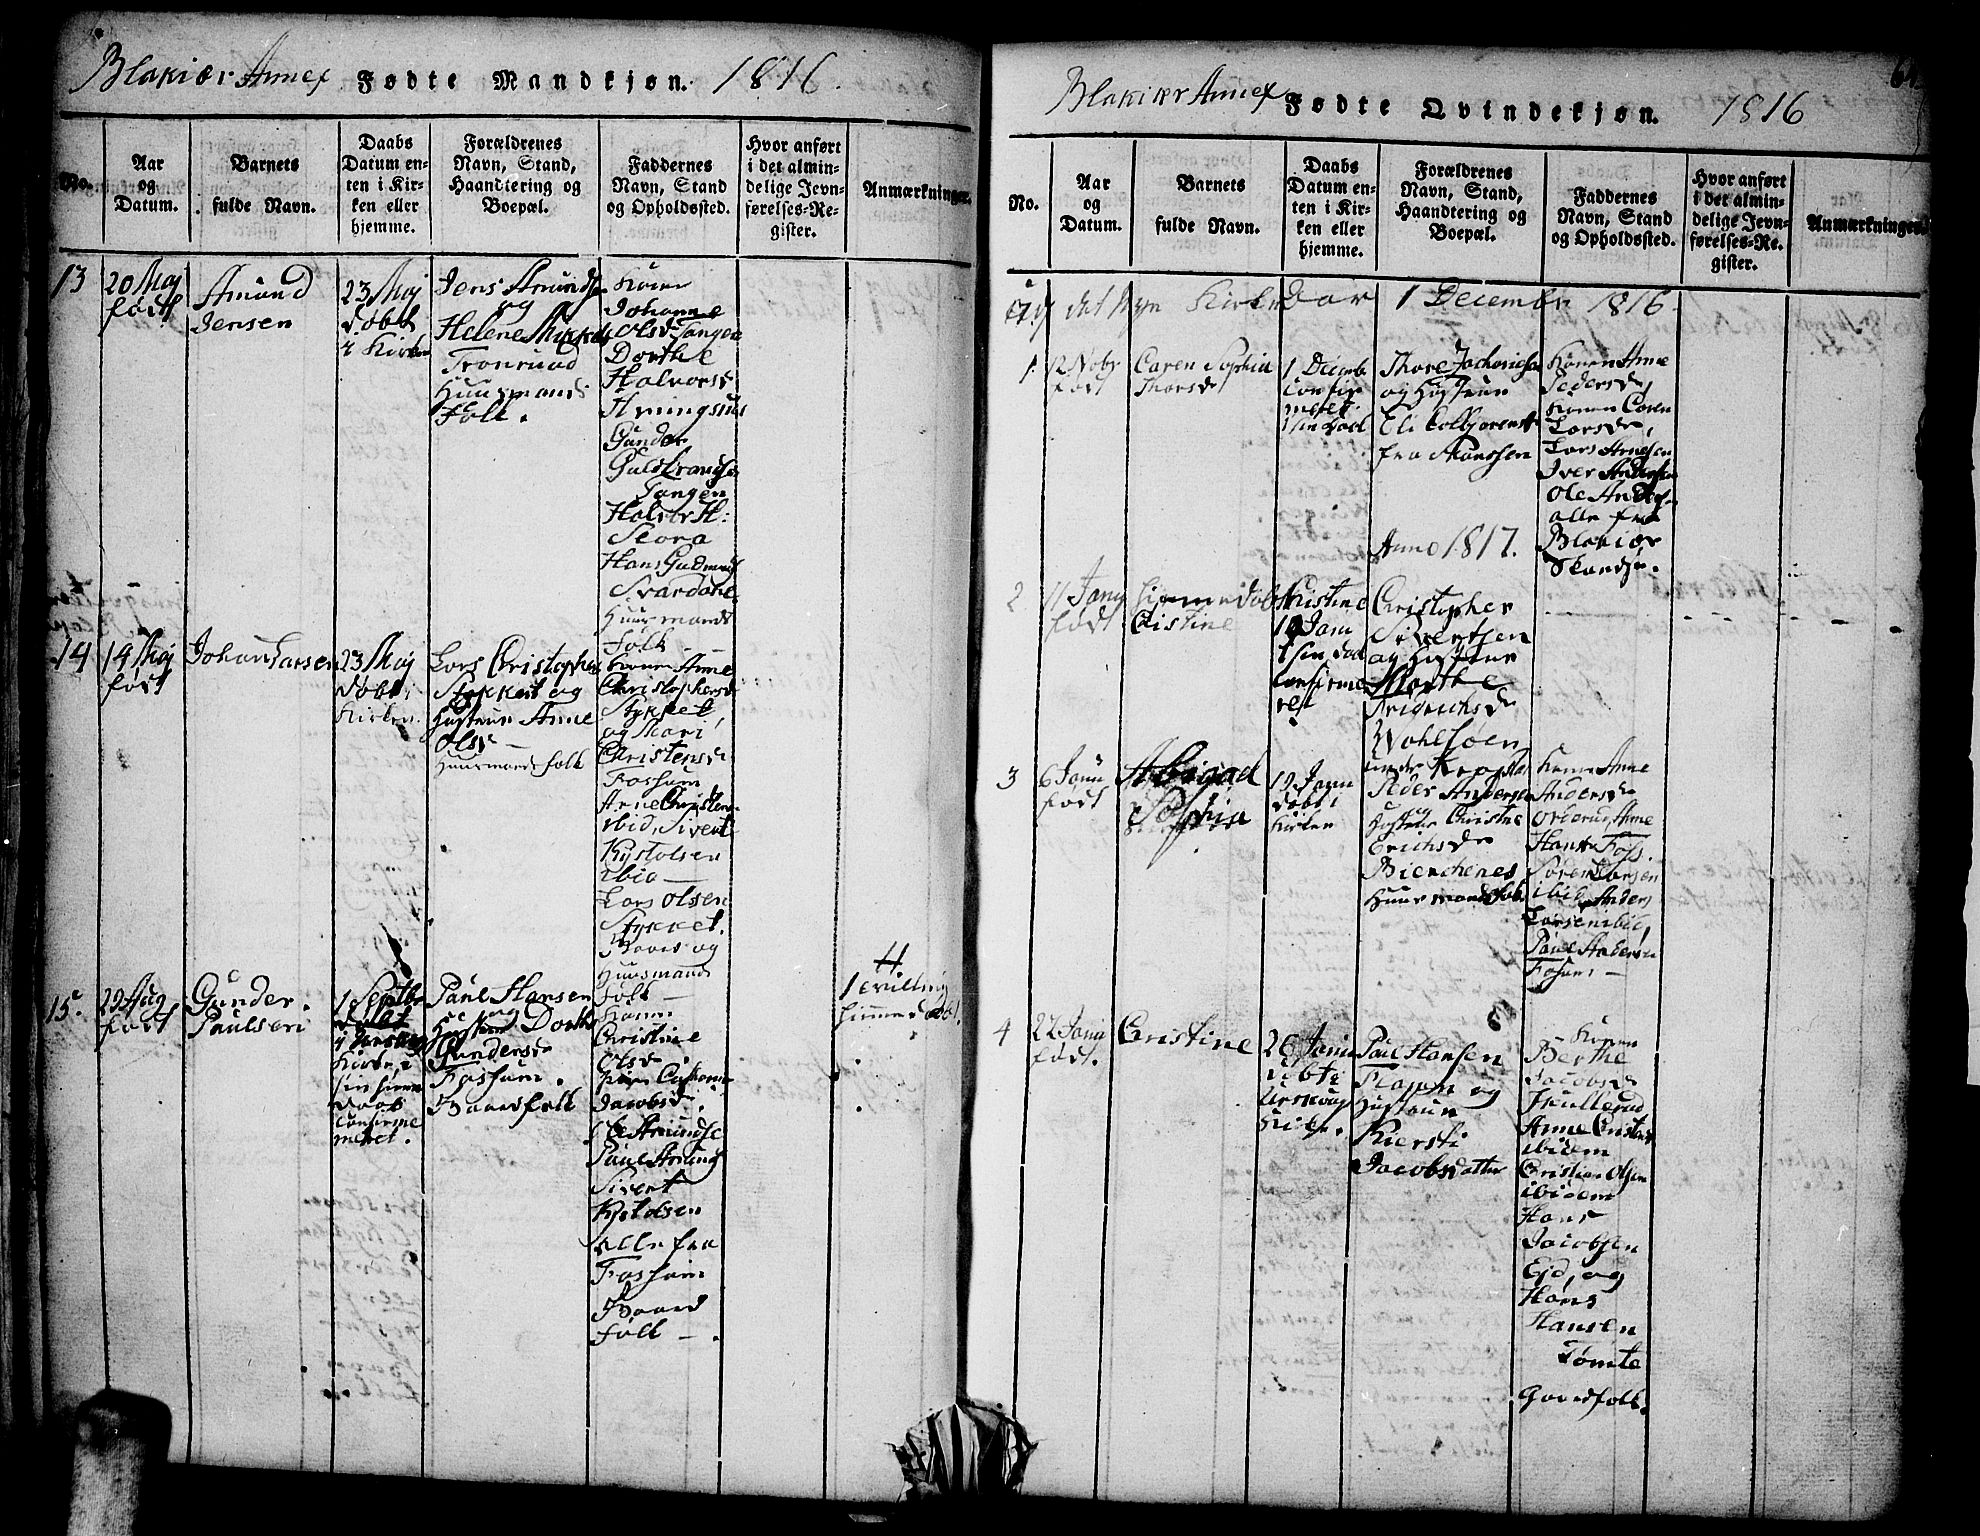 Blakiær Annex Fødte Mandkjøn. 1816.
No.
Aar
og
Datum.
Barnets
fulde Navn.
Daabs
Datum en-
ten i Kir-
ken eller
hjemme.
Forældrenes
Navn, Stand,
Haandtering og
Boepæl.
Faddernes
Navn, Stand
og Opholdssted.
Hvor anført
i det almin-
delige Jevn-
førelses-Re-
gister.
Anmærkninger.
13
20 Maj
født
Amund
Jensen
23 Maj
døbt
i Kirken
Jens Amunds
og
Helene
Tronrud
Huusmands
Folk.
Konen
Johanne
Olsd. Tangen
Dorthe
Halvorsd
Gunder
Guldbrandsen
Tangen
Halvor H:
Hans Gudmunds
Svardahl
Huusmands
Folk
14
19 Maj
født
Johan Larsen
23 Maj
døbt i
Kirken
Lars Christophers
Stykket og
Hustrue Anne
Olsd
Huusmandsfolk
Konen Anne
Christophersd
Stykket,
og Mari
Christensd
Fossum
Arne Christens
ibid, Sivert
Kystolsen
ibid
Lars Olssen
Stykket.
og
Huusmands
Folk
15.
29 Aug
født
Gunder
Paulsen
1 Septbr
Kirke,
sin hjemme
daab
confirme
meret.
Paul Hansen
og
Hustrue Dorthe
Gundersd
Fossum.
Gaardfolk
Konen
Christine
Olsd.
Jacobsd.
Ole Amundse
Paul Amunds
Sivert
Kystolsen
alle fra
Fossum
Gaard
folk
1 tvilling
hjemmedøbt.
Blakiær Annex Fødte Qvindekjøn. 1816
No.
Aar
og
Datum.
Barnets
fulde Navn.
Daabs
Datum en-
ten i Kir-
ken eller
hjemme.
Forældrenes
Navn, Stand,
Haandtering og
Boepæl.
Faddernes
Navn, Stand
og Opholdssted.
Hvor anført
i det almin-
delige Jevn-
førelses-Re-
gister.
Anmærkninger.
det nye Kirke Aar 1 December 1816
1.
12 Novbr
født
Caren Sophia
Thorsd
1 Decemb
confir
meret
sin daab
Thore Zachariesen
og Hustrue
Eli Colbjørensd
fra
Konen Anne
Pedersd,
Konen Caren
Larsd,
Lars Arnesen
Iver Andersen
Ole Anders
alle fra
Blakiær
Skandse.
Anno 1817.
2
11 Janu
født
hjemmedøbt
Christine
19 Janu
sin daab
confirme
ret
Christopher
Sivertsen
og Hustrue
Marthe
Fridrichsd
under
3
6 Janu
født
Abigael
Sophia
19 Janu
døbt i
Kirken
Peder Andersen
og
Hustrue Christne
Erichsd
Bierchenes
Huusmandsfolk
Konen Anne
Andersd
Anne
Hansd Foss.
Søren Larsen
ibid, Anders
Larsen ibid,
Paul Andersen
Fossum
4
22 Janu
født.
Christine
26 Janu
døbt i
Urskoug
Kirke.
Paul Hansen
og
Hustrue
Kiersti
Jacobsdatter
Konen
Berthe
Jacobsd
Anne Christensd
ibidem
Christian Olsen
ibidem
Hans
Jacobsen
Ejd, og
Hans
Hansen
Tømte
Gaardfolk.